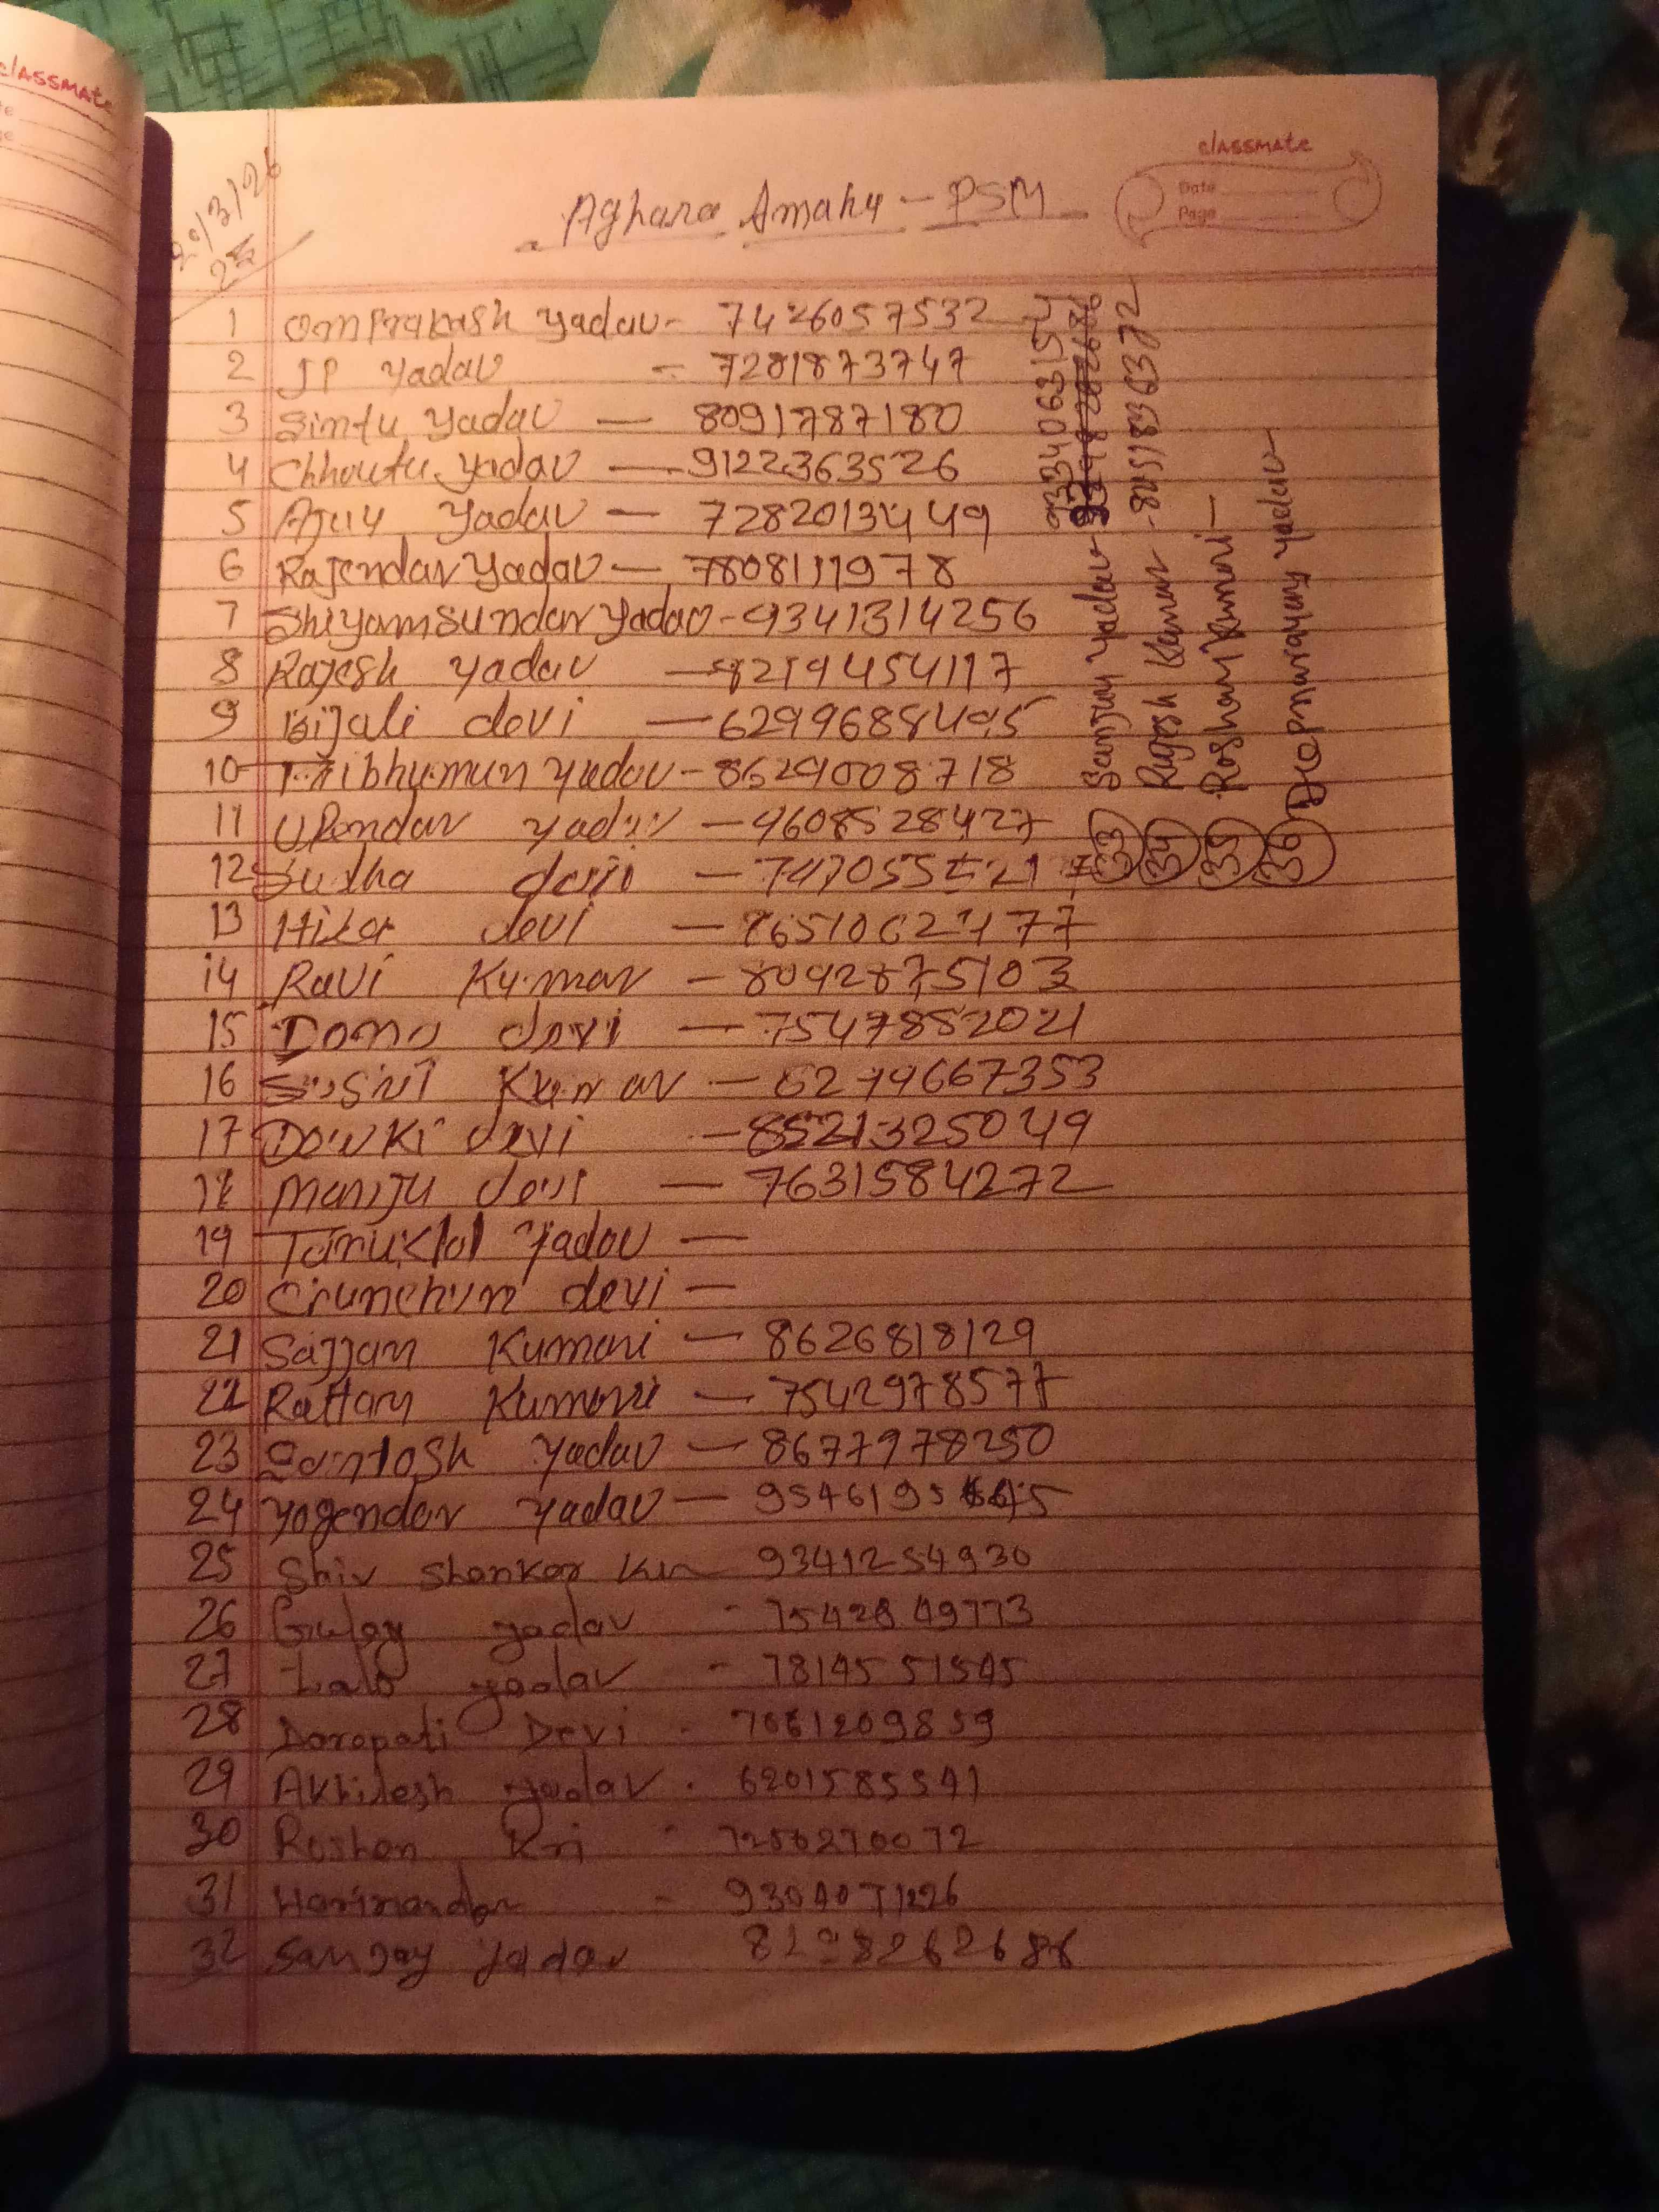 classmate
classmate
Date
Page
20/3/26
Aghara Amahy - PSM
1 Om Prakash Yadav - 7426057532
2 JP Yadav - 7281873747
3 Sintu Yadav — 8091787180
4 Chhoutu Yadav — 9122363526
5 Ajay Yadav — 7282013449
6 Rajendar Yadav — 7808111978
7 Shiyamsundar Yadav - 9341314256
8 Rajesh Yadav — 8219454117
9 Bijali devi — 6299688495
10 Tribhumun Yadav - 8629008718
11 Upendar Yadav — 9608528427
12 Sudha devi —
13 devi —
14 Ravi Kumar - 8092875103
15 Domo devi — 7547882021
16 Susil Kumar — 6299667353
17 Dowki devi — 8521325049
18 Manju devi — 7631584272
19 Tanuklal Yadav —
20 Chunchun devi —
21 Sajjan Kumari — 8626818129
22 Rattan Kumari — 7542978577
23 Santosh Yadav — 8677978250
24 Yogendar Yadav —
25 Shiv Shankar Kr 9341254930
26 Gulay yadav - 7542849773
27 Lalo yadav - 7814551545
28 Daropati Devi - 7061209859
29 Akhilesh yadav. 6201585541
30 Roshan Kri - 7256270072
31 Harinandan - 9304071226
32 Sanjay Yadav 8298262686
9334063154
33 Sanjay Yadav -
34 Rajesh Kumar - 8051836372
35 Roshan Kumari —
36 Deopnarayan Yadav